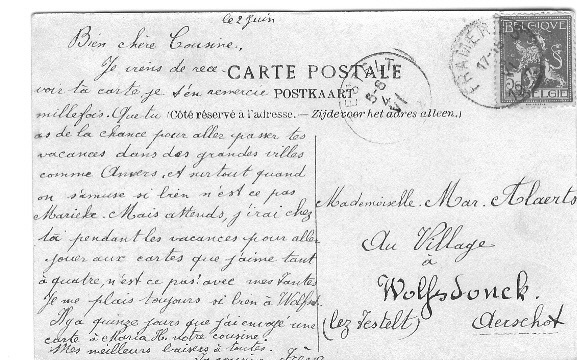 Le 2 Juin
Bien chère Cousine,
Je viens de rece-
CARTE POSTALE
voir ta carte, je t'en remercie
POSTKAART
millefois. Que tu
(Côté réservé à l'adresse. — Zijde voor het adres alleen.)
as de la chance pour aller passer tes
vacances dans des grandes villes
comme Anvers. Et surtout quand
on s'amuse si bien n'est ce pas
Marieke. Mais attends, j'irai chez
toi pendant les vacances pour aller
jouer aux cartes que j'aime tant
à quatre, n'est ce pas? avec mes Tantes
Je me plais toujours si bien à Wolfsd.
Il y a quinze jours que j'ai envoyé une
carte à Maria H. notre cousine.
Mes meilleurs baisers à toutes.
Mademoiselle Mar. Alaerts
Au Village
à
Wolfsdonck.
(lez Testelt) Aerschot
BELGIQUE
BELGIE
FRAMERIES